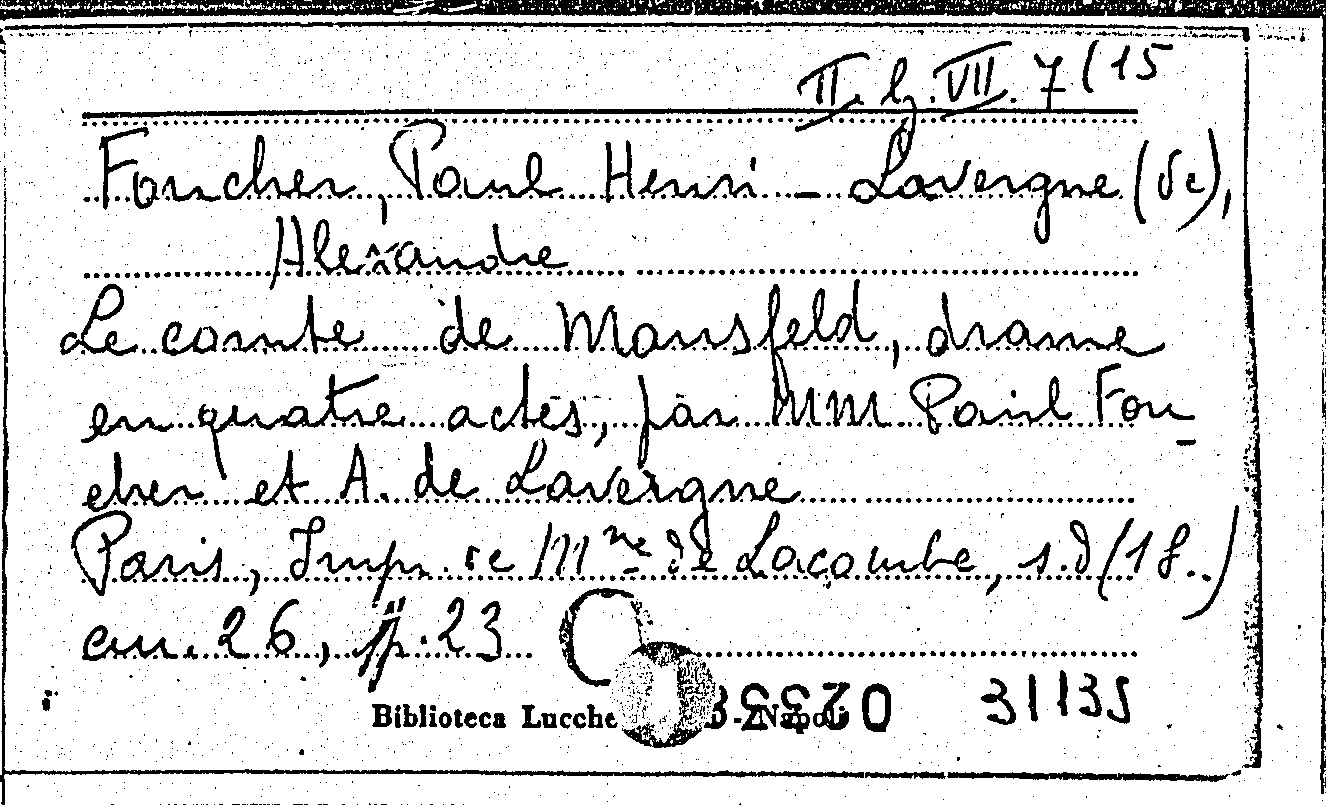 II. lz. VII. 7(15
Foucher, Paul Henri - Lavergne (de),
Alexandre
Le comte de Mansfeld, drame
en quatre actes, par MM Paul Fou-
cher et A. de Lavergne
Paris, Imp. de Mme de Lacombe, s.d (18..)
cm. 26, pp. 23
Biblioteca Lucche - Napoli
31135